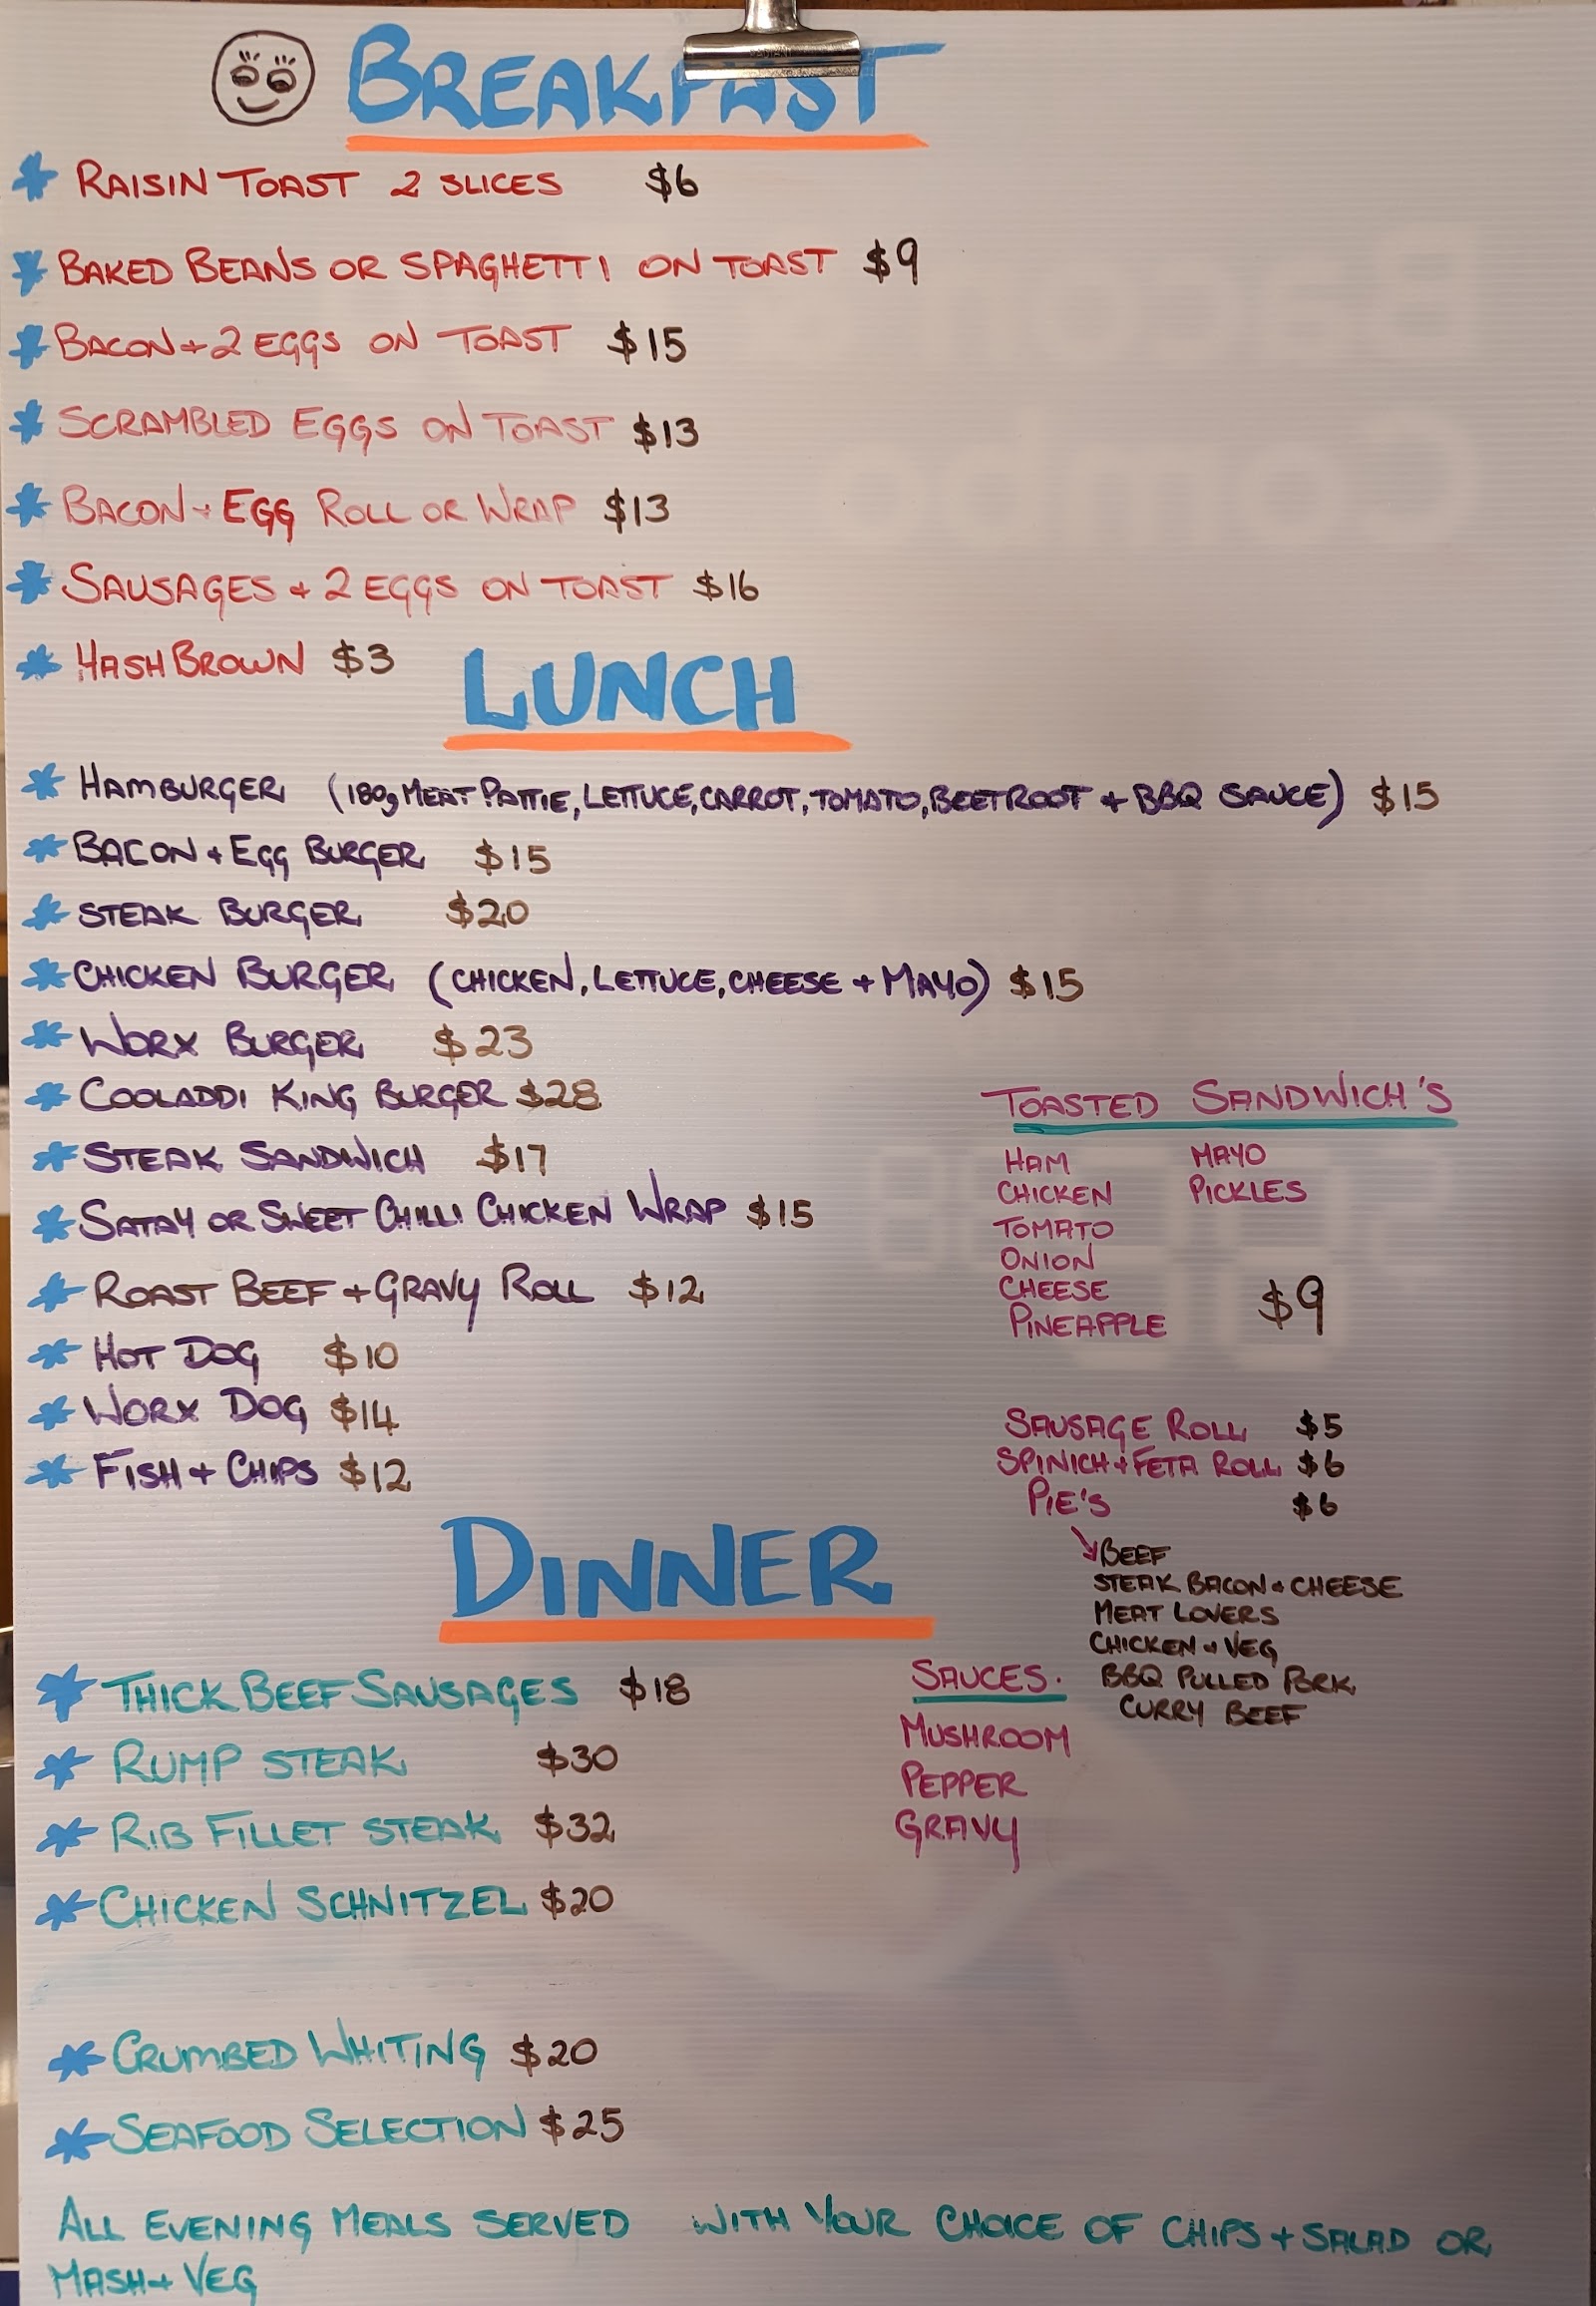 BREAKFAST
RAISIN TOAST 2 SLICES $6
BAKED BEANS OR SPAGHETTI ON TOAST $9
BACON + 2 EGGS ON TOAST $15
SCRAMBLED EGGS ON TOAST $13
BACON + EGG ROLL OR WRAP $13
SAUSAGES + 2 EGGS ON TOAST $16
HASH BROWN $3
LUNCH
HAMBURGER (180g MEAT PATTIE, LETTUCE, CARROT, TOMATO, BEETROOT + BBQ SAUCE) $15
BACON + EGG BURGER $15
STEAK BURGER $20
CHICKEN BURGER (CHICKEN, LETTUCE, CHEESE + MAYO) $15
WORX BURGER $23
COOLADDI KING BURGER $28
STEAK SANDWICH $17
SATAY OR SWEET CHILLI CHICKEN WRAP $15
ROAST BEEF + GRAVY ROLL $12
HOT DOG $10
WORX DOG $14
FISH + CHIPS $12
TOASTED SANDWICH'S
HAM MAYO
CHICKEN PICKLES
TOMATO
ONION
CHEESE
PINEAPPLE
$9
SAUSAGE ROLL $5
SPINICH + FETA ROLL $6
PIE'S $6
BEEF
STEAK BACON + CHEESE
MEAT LOVERS
CHICKEN + VEG
BBQ PULLED PORK
CURRY BEEF
DINNER
THICK BEEF SAUSAGES $18
RUMP STEAK $30
RIB FILLET STEAK $32
CHICKEN SCHNITZEL $20
CRUMBED WHITING $20
SEAFOOD SELECTION $25
SAUCES.
MUSHROOM
PEPPER
GRAVY
ALL EVENING MEALS SERVED WITH YOUR CHOICE OF CHIPS + SALAD OR
MASH + VEG